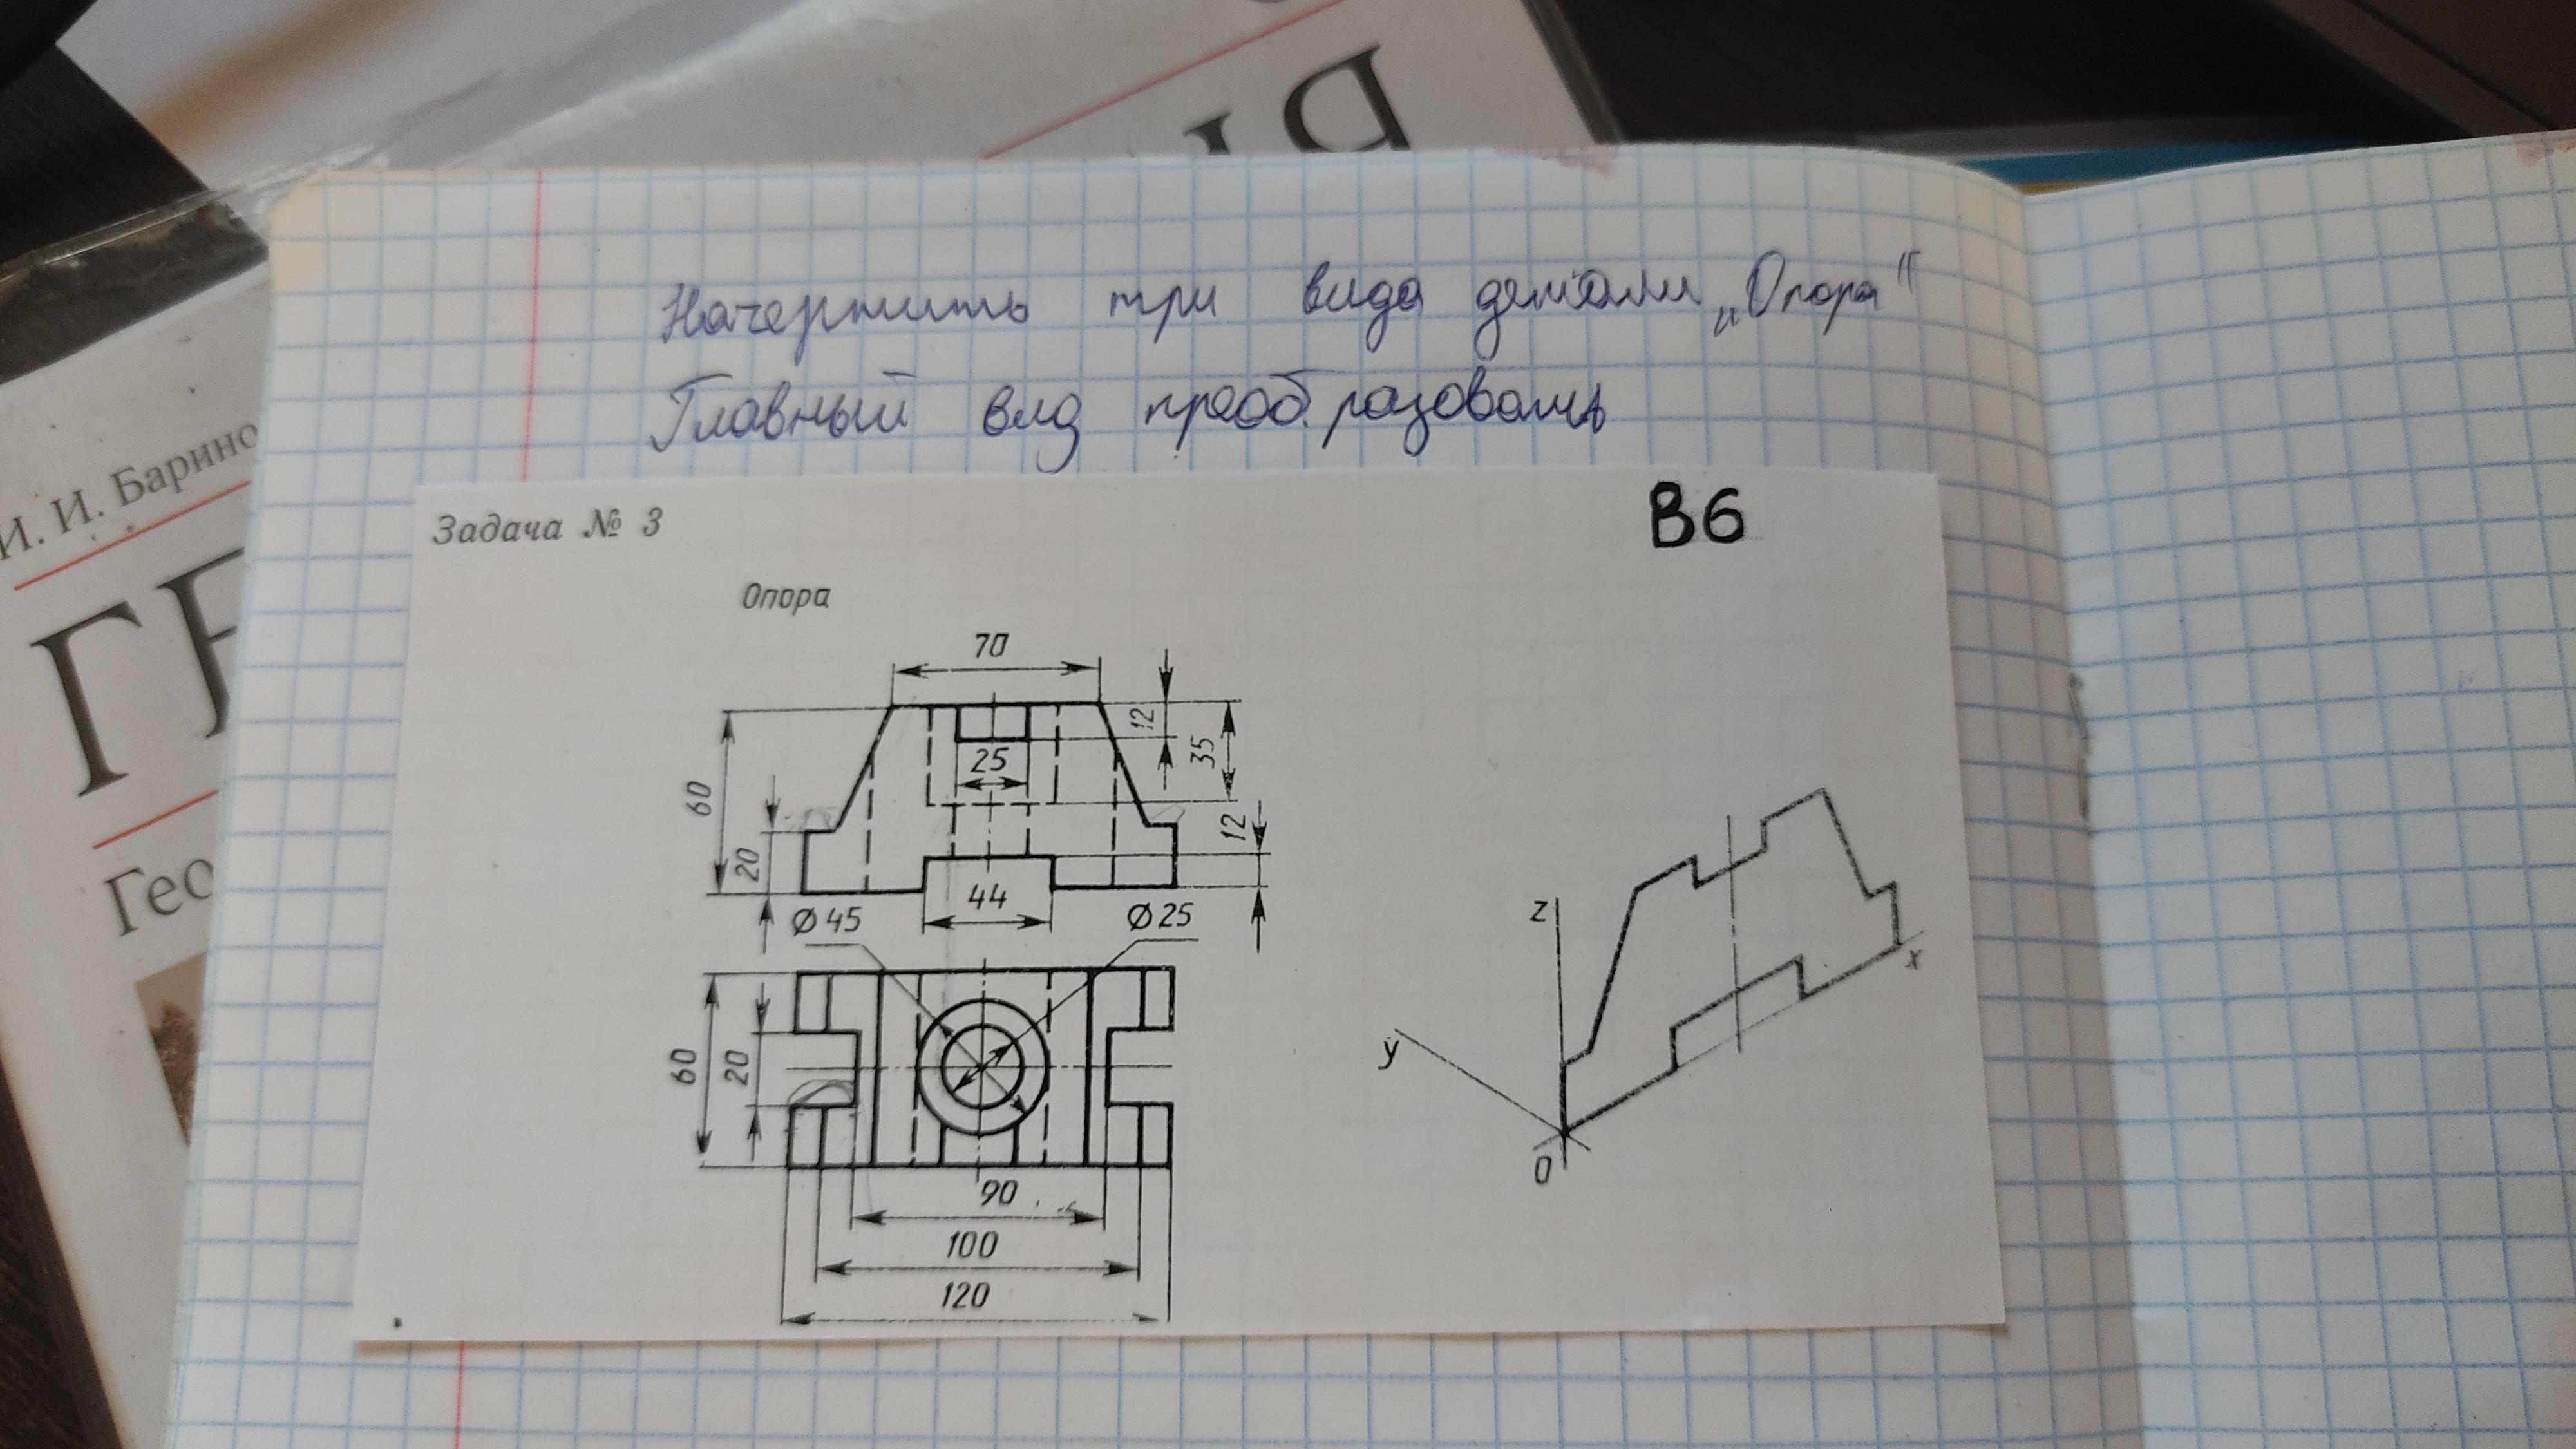 И. И. Барино
Гео
Начертить три вида детали „Опора"
Главный вид преобразовать
Задача № 3
В6
Опора
70
12
35
25
60
20
12
44
Ø45
Ø25
60
20
90
100
120
z
y
x
0